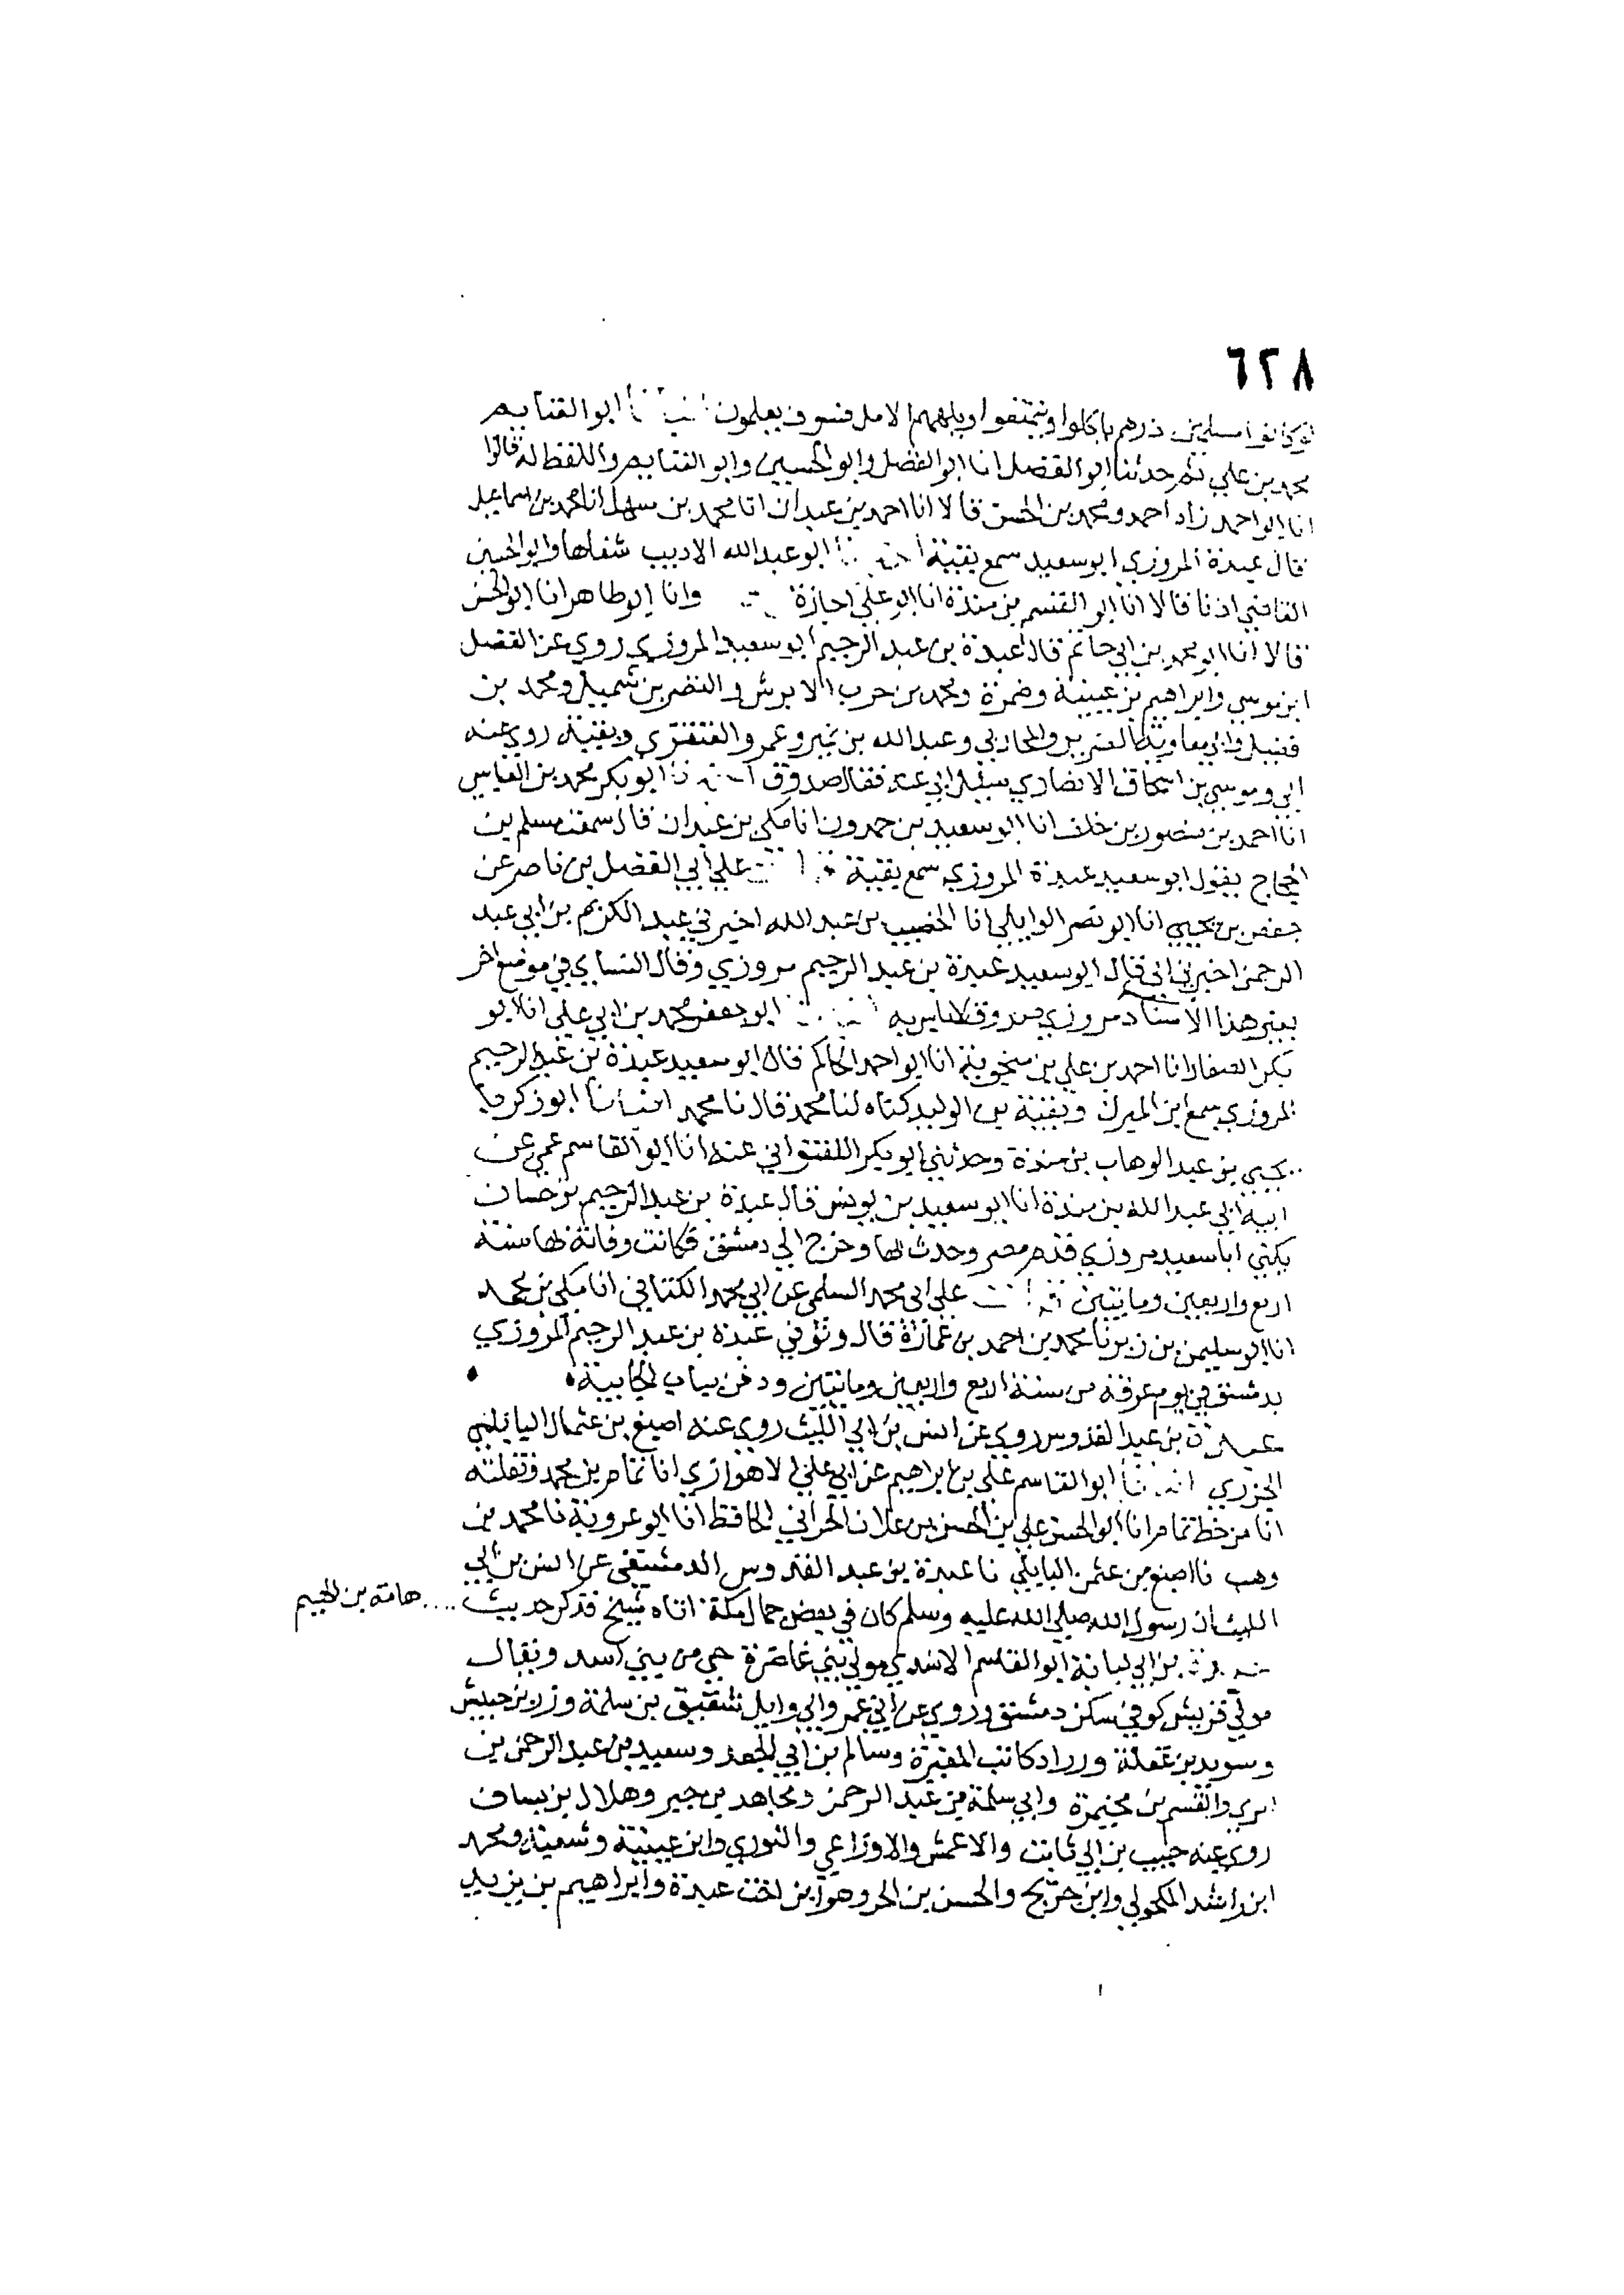 ٦٢٨
لو كانوا مسلمين ذرهم ياكلوا ويتمتعوا ويلههم الامل فسوف يعلمون انبانا ابو الغنايم
محمد بن علي ثم حدثنا ابو الفضل انا ابو الفضل وابو الحسين وابو الغنايم واللفظ له قالوا
انا ابو احمد زاد احمد ومحمد بن الحسن قالا انا احمد بن عبدان انا محمد بن سهل انا محمد بن اسماعيل
قال عبدة المروزي ابو سعيد سمع بقية ابو عبد الله الاديب شفاها وابو الحسين
القاضي اذنا قالا انا ابو القسم بن مندة انا ابو علي اجازة وانا ابو طاهر انا ابو الحسن
قالا انا ابو محمد بن ابي حاتم قال عبدة بن عبد الرحيم ابو سعيد المروزي روى عن الفضل
ابن موسي وابراهيم بن عيينة وضمرة ومحمد بن حرب الابرش والنضر بن شميل ومحمد بن
فضيل وابي معاوية الضرير والمحاربي وعبد الله بن نمير وعمرو العنقزي وبقية روى عنه
ابي وموسي بن اسحاق الانصاري سيل ابي عنه فقال صدوق ابو بكر محمد بن العباس
انا احمد بن منصور بن خلف انا ابو سعيد بن حمدون انا مكي بن عبدان قال سمعت مسلم بن
الحجاج يقول ابو سعيد عبدة المروزي سمع بقية علي ابي الفضل بن ناصر عن
جعفر بن يحيي انا ابو نصر الوايلي انا الخصيب بن عبد الله اخبرني عبد الكريم بن ابي عبد
الرحمن اخبرني ابي قال ابو سعيد عبدة بن عبد الرحيم مروزي وقال النساي في موضع اخر
بغير هذا الاسناد مروزي صدوق لا باس به ابو جعفر محمد بن ابي علي انا ابو
بكر الصفار انا احمد بن علي بن منجوية انا ابو احمد الحاكم قال ابو سعيد عبدة بن عبد الرحيم
المروزي سمع ابن المبرك وبقية بن الوليد كناه لنا محمد قال نا محمد انبانا ابو زكريا
يحيي بن عبد الوهاب بن مندة وحدثني ابو بكر اللفتواني عنه انا ابو القاسم عمي عن
ابيه ابي عبد الله بن مندة انا ابو سعيد بن يونس قال عبدة بن عبد الرحيم بن حسان
يكني ابا سعيد مروزي قدم مصر وحدث بها وخرج الي دمشق فكانت وفاته بها سنة
اربع واربعين ومايتين علي ابي محمد السلمي عن ابي محمد الكتاني انا مكي بن محمد
انا ابو سليمن بن زبر نا محمد بن احمد بن عمارة قال وتوفي عبدة بن عبد الرحيم المروزي
بدمشق في يوم عرفة من سنة اربع واربعين ومايتين ودفن بباب الجابية
عبدة بن عبد القدوس روي عن انس بن ابي الليث روي عنه اصبغ بن عثمان البابلتي
الجزري ابو القاسم علي بن ابراهيم عن ابي علي الاهوازي انا تمام بن محمد ونقلته
انا من خط تمام انا ابو الحسن علي بن الحسن بن علان الحراني الحافظ انا ابو عروبة نا محمد بن
وهب نا اصبغ بن عثمن البابلي نا عبدة بن عبد القدوس الدمشقي عن انس بن ابي
الليث ان رسول الله صلي الله عليه وسلم كان في بعض جبال مكة اتاه شيخ فذكر حديث .... هامة بن الهيم
عبدة بن ابي لبابة ابو القاسم الاسدي مولي بني غاضرة حي من بني اسد ويقال
مولي قريش كوفي سكن دمشق وروي عن ابن عمر وابي وايل شقيق بن سلمة وزر بن حبيش
وسويد بن غفلة ووراد كاتب المغيرة وسالم بن ابي الجعد وسعيد بن عبد الرحمن بن
ابزي والقسم بن مخيمرة وابي سلمة بن عبد الرحمن ومجاهد بن جبر وهلال بن يساف
روي عنه حبيب بن ابي ثابت والاعمش والاوزاعي والثوري وابن عيينة وشعبة ومحمد
ابن راشد المكحولي وابن جريج والحسن بن الحر وهو ابن اخت عبدة وابراهيم بن يزيد